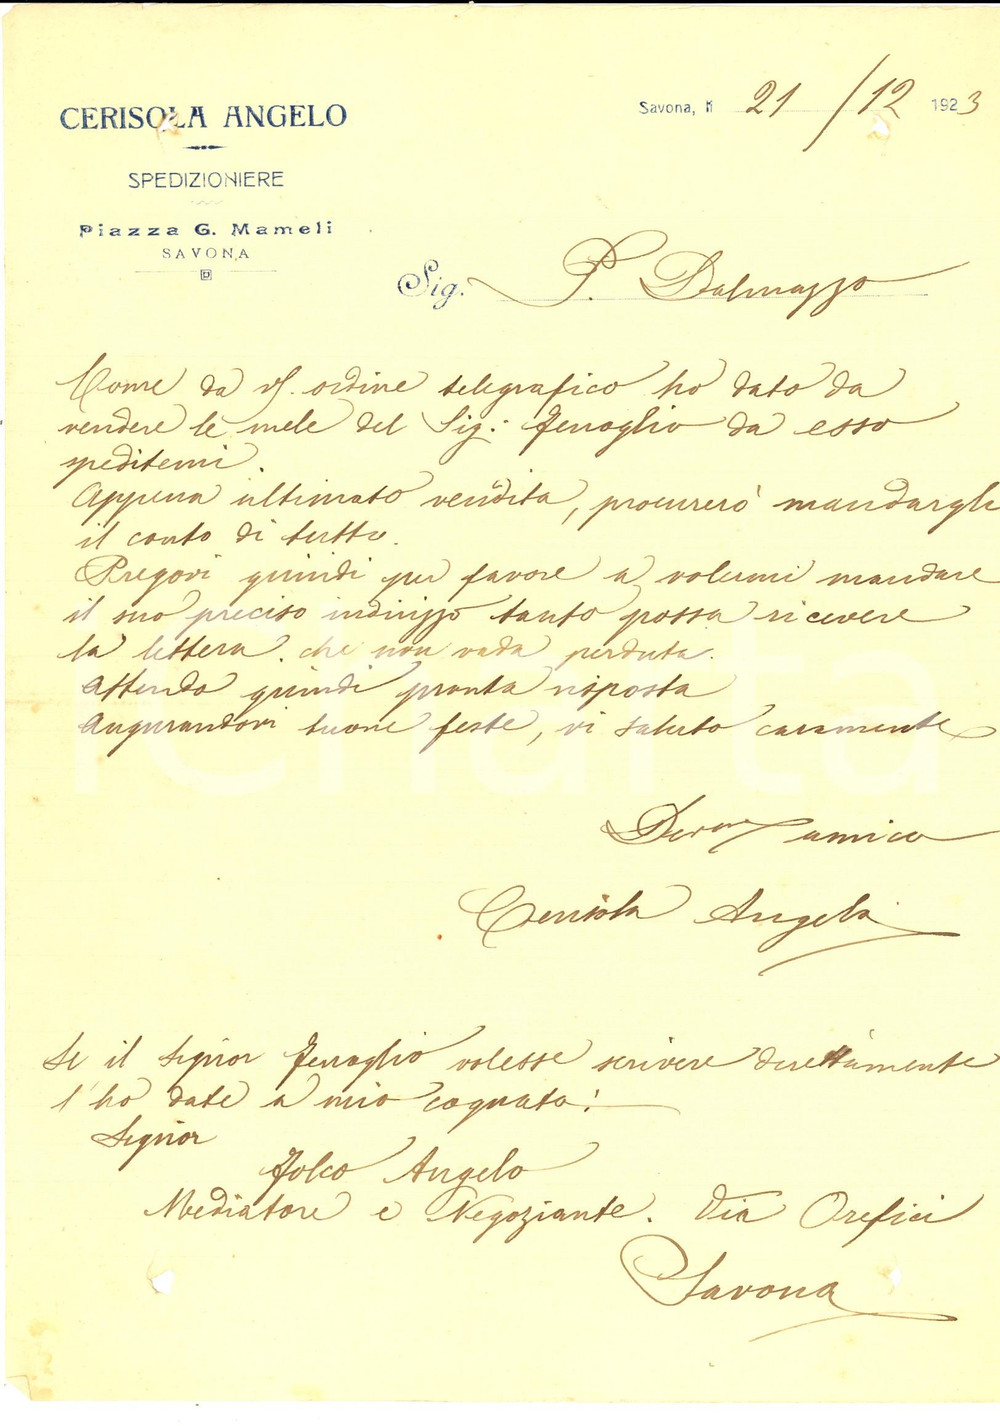 CERISOLA ANGELO
SPEDIZIONIERE
Piazza G. Mameli
SAVONA
Savona, li 21/12 1923
Sig. P. Dalmazzo
Come da vs. ordine telegrafico ho dato da
vendere le mele del Sig: Ferroglio da esso
speditemi.
Appena ultimato vendita, procurerò mandargli
il conto di tutto.
Pregovi quindi per favore a volermi mandare
il suo preciso indirizzo tanto possa ricevere
la lettera. che non vada perduta.
Attendo quindi pronta risposta
Augurandovi buone feste, vi saluto caramente
amico
Cerisola Angelo
Se il Signor Ferroglio volesse scrivere direttamente
l'ho date a mio cognato:
Signor
Folco Angelo
Mediatore e Negoziante. Via Orefici
Savona